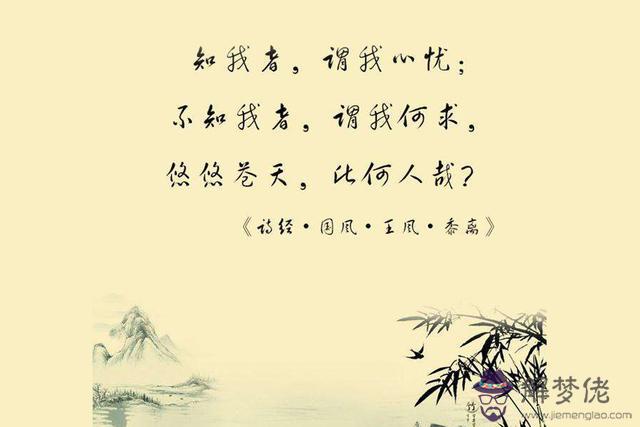 知我者，谓我心忧；
不知我者，谓我何求，
悠悠苍天，此何人哉？
《诗经·国风·王风·黍离》
解梦佬
www.jiemenglao.com